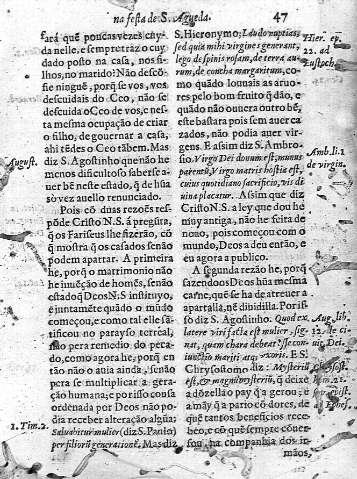 na festa de S. Agueda. 47
fará quẽ poucas vezes chy
da nelle, e sempre trazo cuy
dado posto na casa, nos fi-
lhos, no marido? Não descõ-
fie ninguẽ, porq̃ se vos, vos
descuidais do Ceo, não se
descuida o Ceo de vos, e nes-
ta mesma ocupação de criar
o filho, de governar a casa,
ahi tẽdes o Ceo tãbem. Mas
diz S. Agostinho que não he
menos dificultoso saber usar
bẽ neste estado, q̃ de hũa
só vez auello renunciado.
August.
Pois cõ duas rezoẽs res-
põde Cristo N. S. á pregũta,
q̃ os Fariseus lhe fizerão, cõ
q̃ mostra q̃ os casados senão
podem apartar. A primeira
he, porq̃ o matrimonio não
he inuẽção de homẽs, senão
estado q̃ Deos N. S. instituyo,
e juntamẽte quãdo o mũdo
começou, e como tal elle sã-
tificou no parayso terreal,
não pera remedio do pec-
cado, como agora he, porq̃ en
tão não o auia ainda, senão
pera se multiplicar a gera-
ção humana; e por isso cousa
ordenada por Deos não po-
dia receber alteração algũa:
Saluabitur mulier (diz S. Paulo)
per filiorũ generationẽ. Mas diz
1. Tim. 2.
S. Hieronymo; Laudo nuptias,
sed quia mihi virgines generant,
lego de spinis rosam, de terra au-
rum, de concha margaritum, co-
mo quãdo louuais as aruo-
res pelo bom fruito q̃ dão, e
quãdo não ouuera outro bẽ,
este bastara pois sem auer ca
zados, não podia auer vir-
gens. E assim diz S. Ambro-
sio. Virgo Dei donum est, munus
parentũ, Virgo matris hostia est,
cuius quotidiano sacrificio, vis di
uina placatur. Assim que diz
Cristo N. S. a ley que dou hé
muy antiga, não he feita de
nouo, pois começou com o
mundo, Deos a deu então, e
eu agora a publico.
Hier. ep.
22. ad
Eustoch.
Amb. li. 1
de virgin.
A segunda rezão he, porq̃
fazendo os Deos hũa mesma
carne, quẽ se ha de atreuer a
apartalla, nẽ diuidilla. Por isso
diz S. Agostinho. Quod ex
latere viri facta est mulier, sig-
nat, quam chara debeat esse con-
iunctio mariti atq̃ vxoris. E S.
Chrysostomo diz: Mysterium
est, & magnum mysteriũ, q̃ deixe
a dõzella o pay q̃ a gerou; e
a mãy q̃ a pario cõ dores, de
que tantos beneficios rece-
beo, e cõ quẽ sempre conuer-
sou, na companhia dos ir-
mãos,
Aug. lib.
12. de ci-
uit. Dei.
Chrysost.
hom. 21.
ad
Ephes.